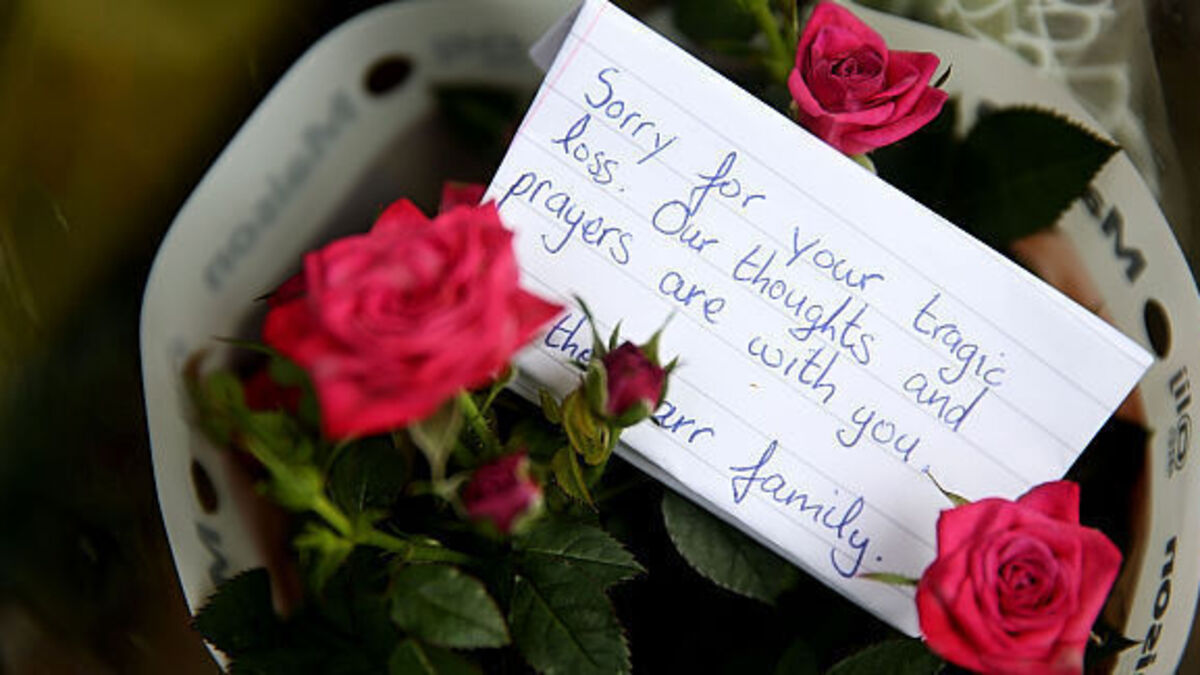 Sorry for your tragic
loss. Our thoughts and
prayers are with you.
the arr family.
Maison
Maison